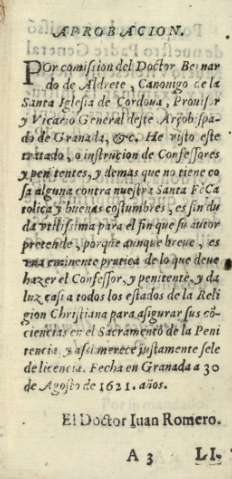 APROBACION.
POr comission del Doctor Bernar
do de Aldrete, Canonigo de la
Santa Iglesia de Cordoua, Prouisor
y Vicario General deste Arçobispa
do de Granada, &c. He visto este
tratado, o instrucion de Confessores
y penitentes, y demas que no tiene co
sa alguna contra nuestra Santa Fè Ca
tolica, y buenas costumbres, es sin du
da vtilissima para el fin que su autor
pretende, porque aunque breue, es
vna eminente pratica de lo que deue
hazer el Confessor, y penitente, y da
luz casi a todos los estados de la Reli
gion Christiana para asigurar sus cō
ciencias en el Sacramento de la Peni
tencia, y assi merece justamente se le
de licencia. Fecha en Granada a 30
de Agosto de 1621. años.
El Doctor Iuan Romero.
A 3 LI-